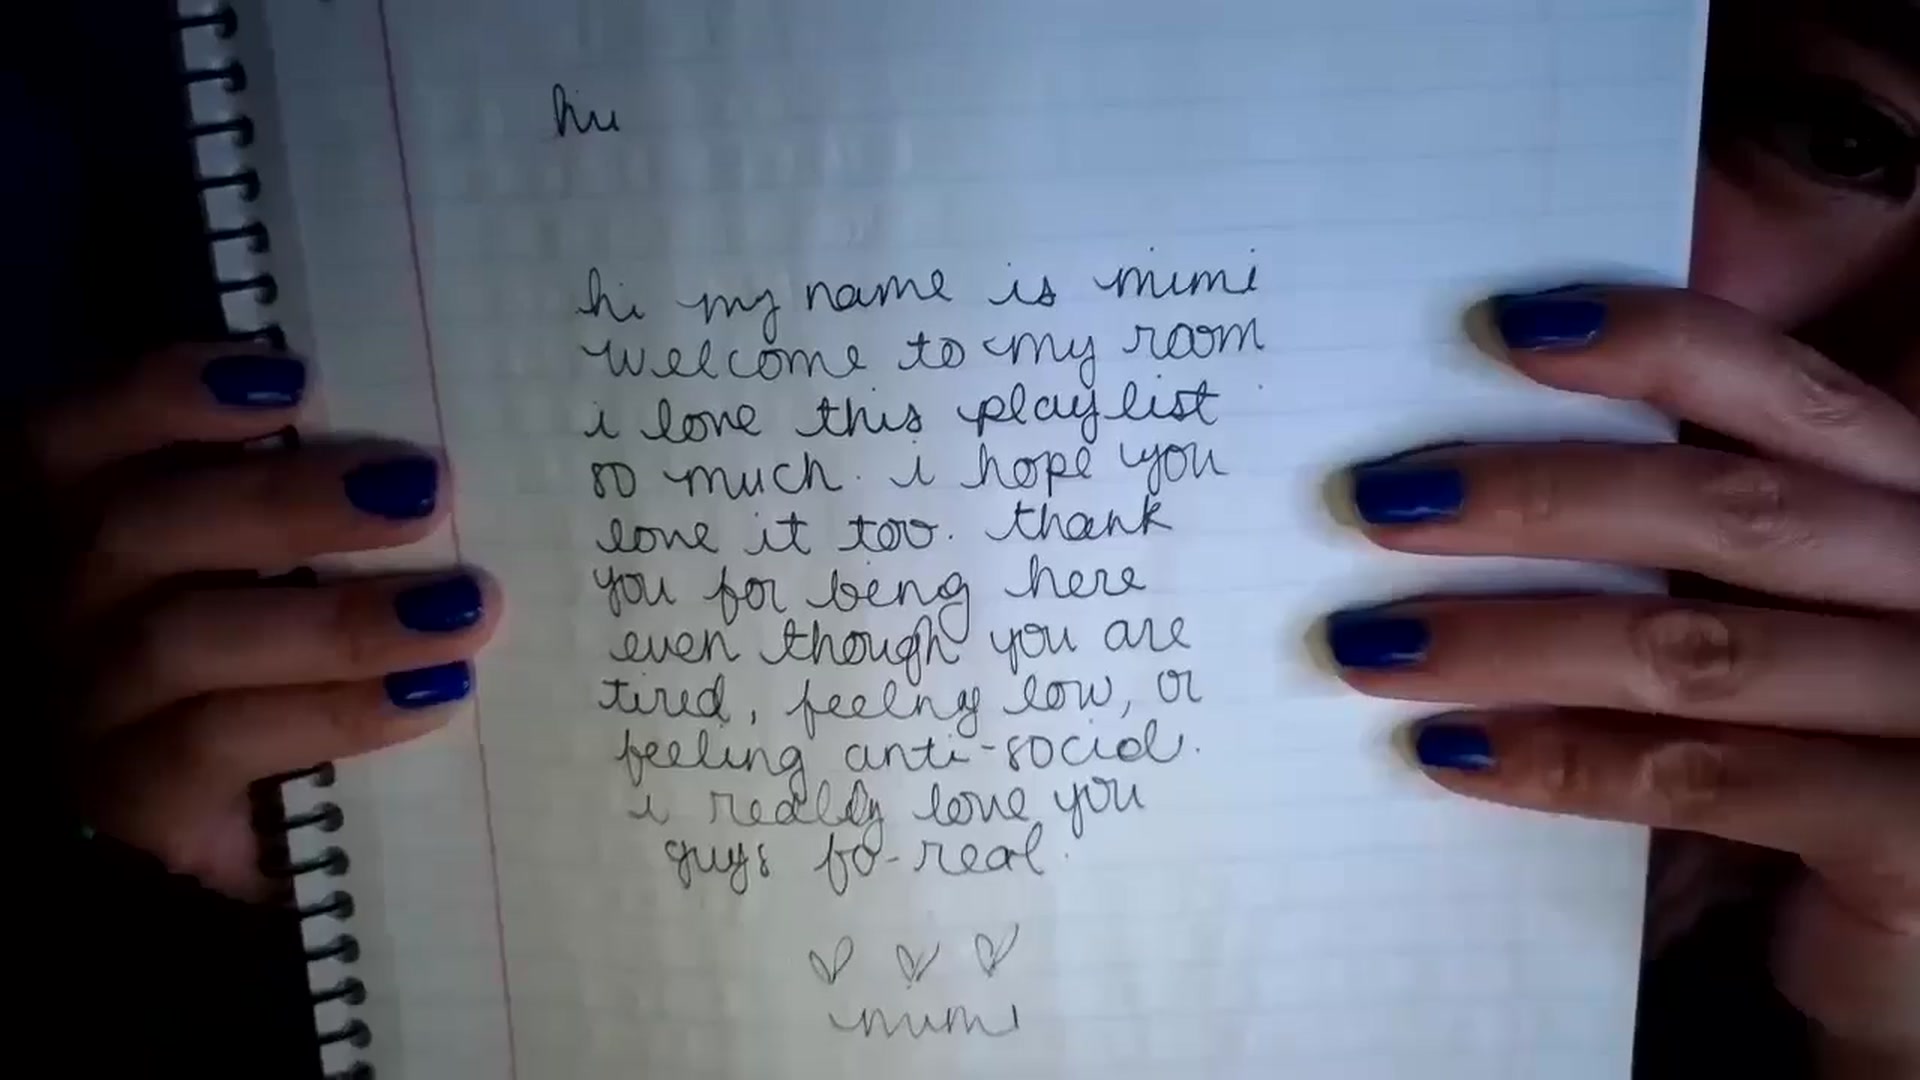 hii
hi my name is mimi
welcome to my room
i love this playlist
so much. i hope you
love it too. thank
you for being here
even though you are
tired, feeling low, or
feeling anti-social.
i really love you
guys fo-real.
♡ ♡ ♡
mimi